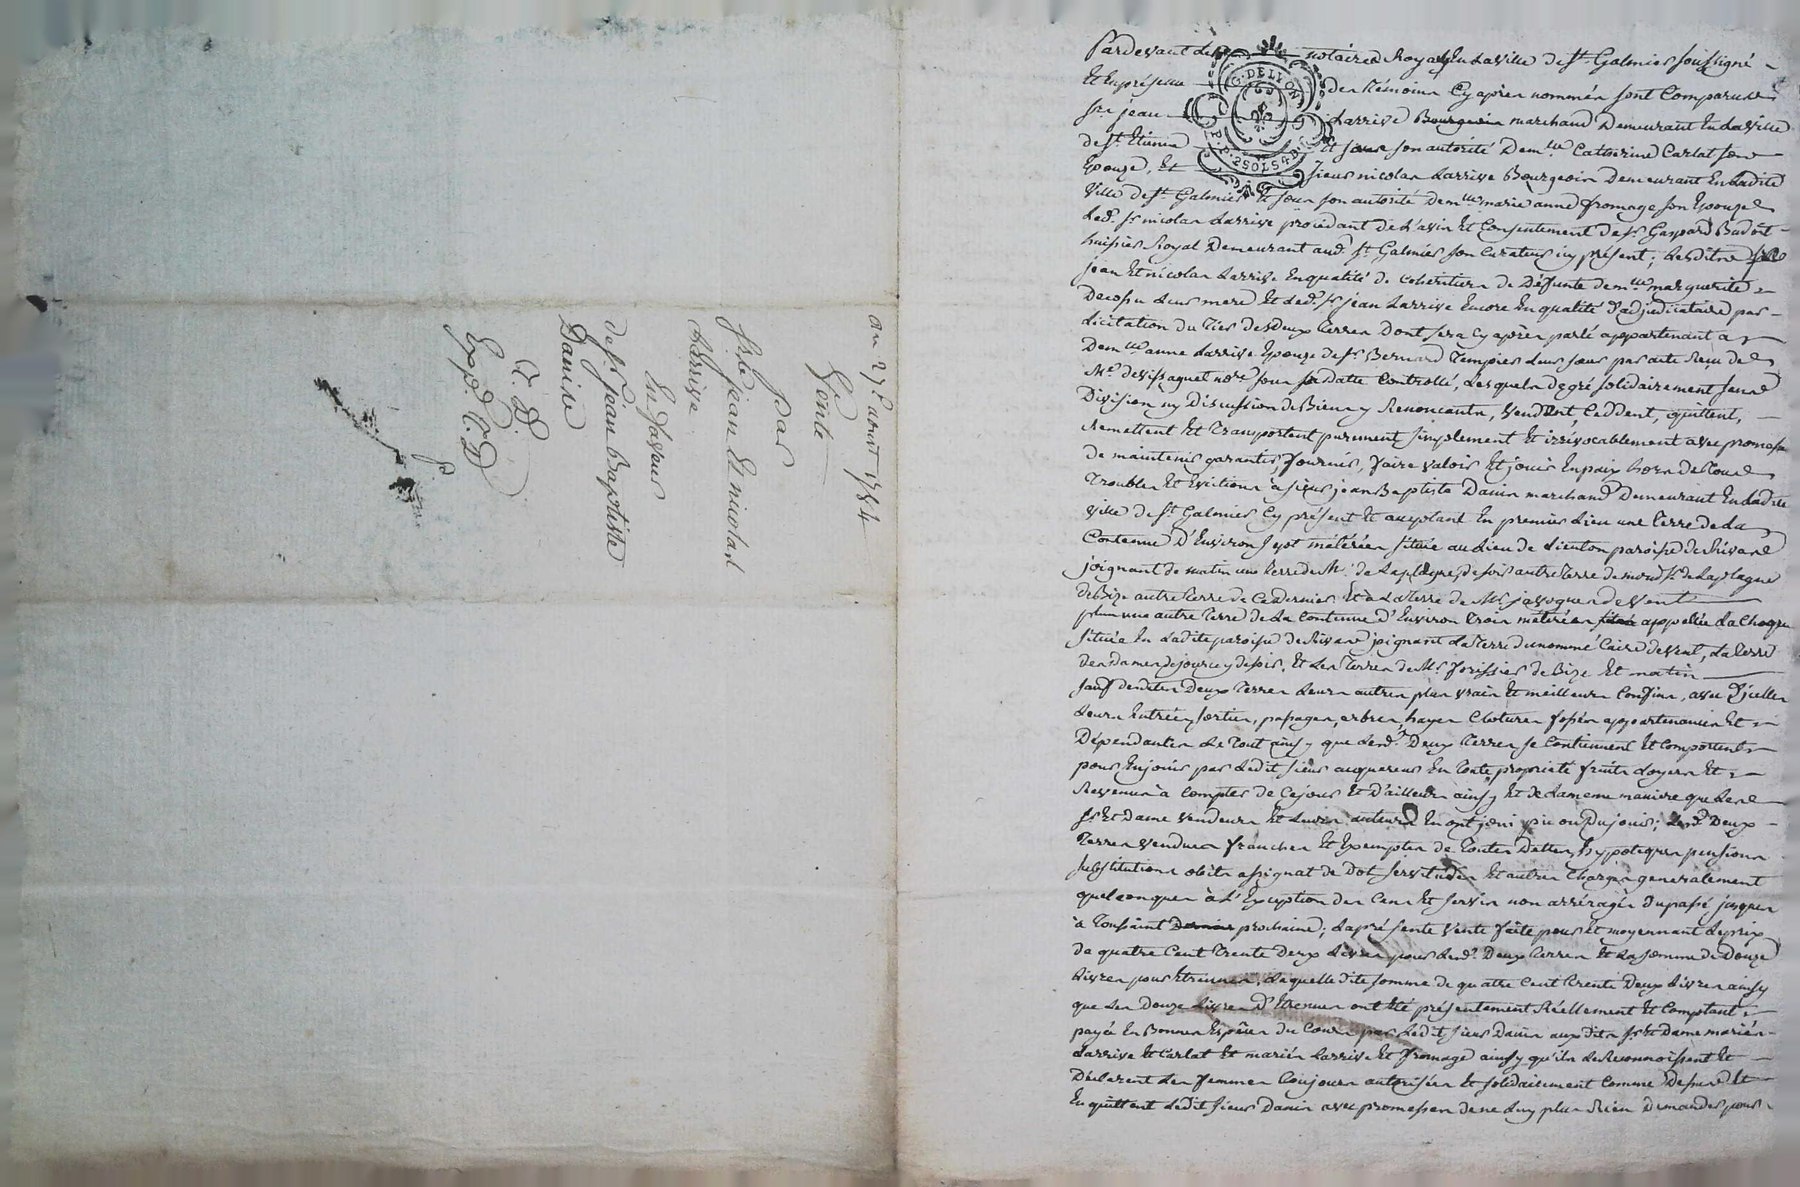 du 27e aoust 1754
Vente
par
srs jean Et nicolas
Larrive
En faveur
de sr jean Baptiste
Danin
C. D.
Exp. C. D.
Pardevant le notaire Royal En la ville de St. Galmier soussigné
Et En présence des témoins Cy après nommés sont Comparus
sr. jean Larrive Bourgeois marchand Demeurant En la ville
de St. Etienne Et sous son autorité Demlle Catherine Carlat son
Epouze, Et sieur nicolas Larrive Bourgeois Demeurant En ladite
ville de St. Galmier Et sous son autorité demlle marie anne fromage son Epouze
led. sr nicolas Larrive procédant de l'avis Et Consentement de sr. Gaspard Badoit
huissier Royal Demeurant aud. St. Galmier son Curateur icy présent; lesdits
jean Et nicolas Larrive En qualité de Cohéritiers de Défunte demlle marguerite
leur mere Et led. sr jean Larrive Encore En qualité d'adjudicataire par
licitation du tiers desdeux terres Dont sera Cy après parlé appartenant a
Demlle anne Larrive Epouze de sr Bernard leur sœur par acte Reçu de
Me devissaguet nore sous sa datte Controllé, Lesquels de gré solidairement sans
Division ny Discussion de Biens y Renonçants, vendent, Ceddent, quittent,
Remettent Et transportent purement simplement Et irrévocablement avec promesse
de maintenir garantir, fournir, faire valoir Et jouir En paix hors de tous
troubles Et Evictions à sieur jean Baptiste Danin marchand Demeurant En ladite
ville de St. Galmier Cy présent Et acceptant En premier Lieu une terre de la
Contenue D'Environ sept métérées située au Lieu de paroisse de Rivas
joignant de matin une terre de Mr. de Laplagne, de soir autre terre de mond. sr. de Laplagne
de Bize autre terre de Ce dernier Et à La terre de Mr javogues de Vent
plus une autre terre de la Contenue d'Environ trois métérées appellée La
située En Ladite paroisse de Rivas joignant La terre du nommé Caire de vent, La terre
des dames de jourcey de soir, Et Les terres de Mr forissier de Bize Et matin
sauf desdites Deux terres Leurs autres plus vrais Et meilleurs Confins, avec d'jcelles
Leurs Entrées, sorties, passages, arbres, hayes Clotures fossés appartenances Et
Dépendantes Le tout ainsy que Lesd. Deux terres se Contiennent Et Comportent
pour En jouir par Ledit sieur acquereur En toute propriété fruits Loyers Et
Revenus à Compter de Ce jour Et D'ailleurs ainsy Et de La meme maniere que Les
srs Et Dame vendeurs Et Leurs auteurs En ont joui pu ou Du jouir; Lesd. Deux
terres vendues franches Et Exemptes de toutes Dettes, hypoteques pensions
substitutions obits assignat de Dot servitudes Et autres Charges generalement
quelconques à L'Exception des Cens Et servis non arréragés du passé jusques
à toussaint prochaine; La présente vente faite pour Et moyennant Le prix
de quatre Cent trente Deux Livres pour Lesd. Deux terres Et La somme de Douze
Livres pour Etrennes, Laquelle dite somme de quatre Cent trente Deux Livres ainsy
que Les Douze Livres D'Etrennes ont Eté présentement Réellement Et Comptant
payée En Bonnes Espèces du Cours par Ledit sieur Danin auxdits srs Et Dame mariés
Larrive Et Carlat Et mariés Larrive Et fromage ainsy qu'ils Le Reconnoissent Et
Déclarent Les femmes toujours autorisées Et solidairement Comme Dessus Et
En quittent Ledit sieur Danin avec promesses de ne Luy plus Rien Demander pour
G. DE LYON
P. P. 2 SOLS 4 D.